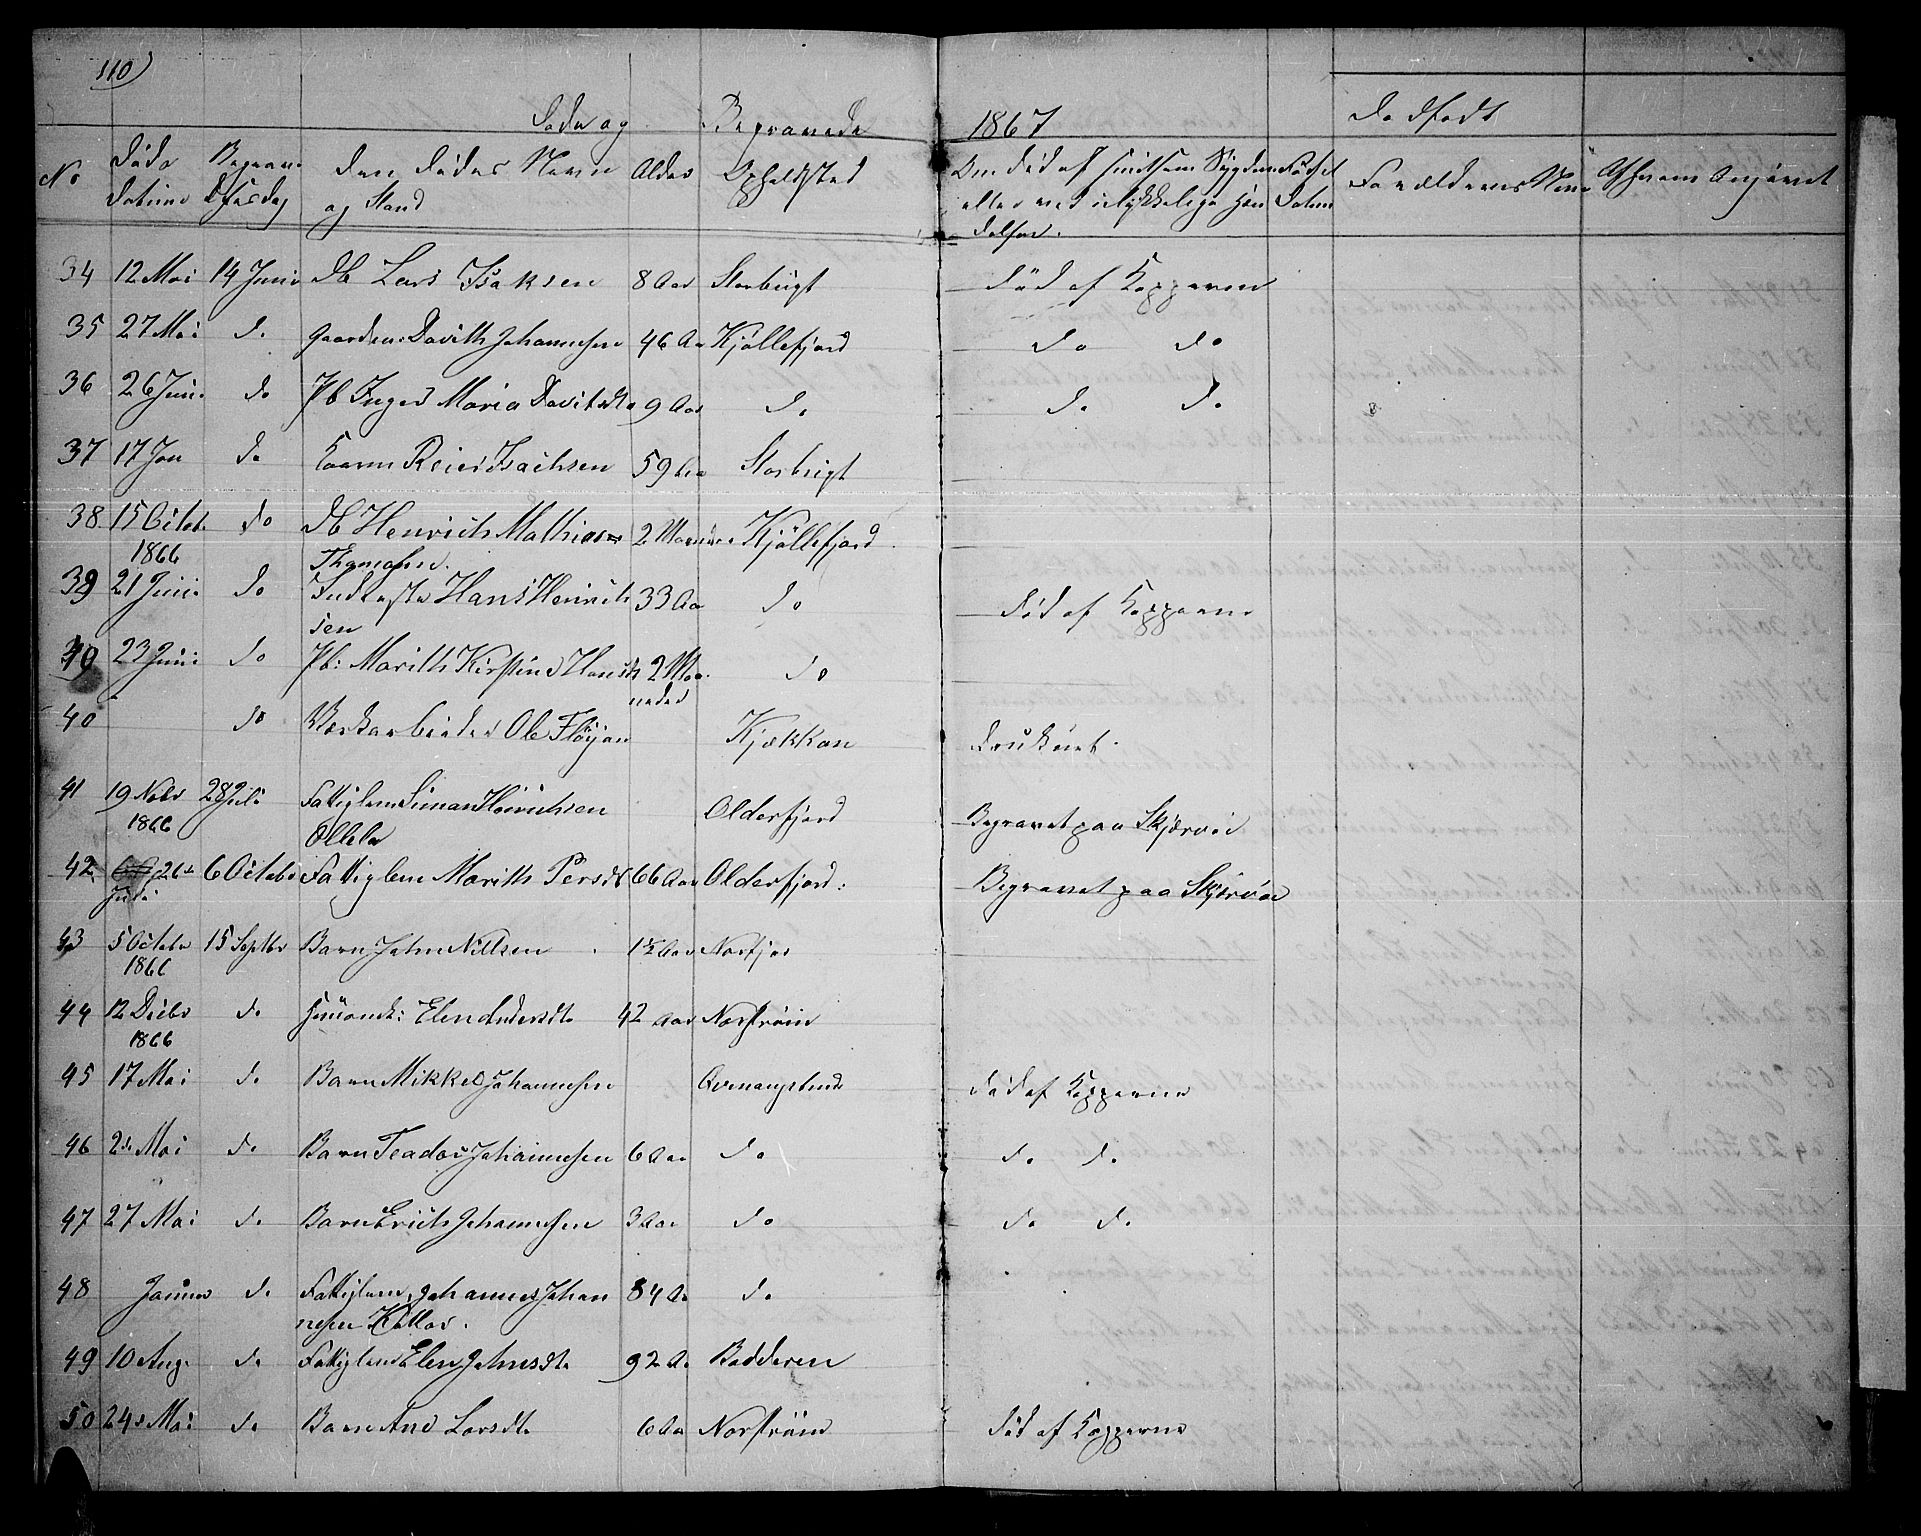 110)
Döde og Begravede 1867 Dødfødte
No Döds Datum Begravelsesdag Den Dödes Navn og Stand Alder Opholdsted Om död af smitsom Sygdom eller ved ulykkelige Hændelser. Födsels Datum Forældrenes Navn Af hvem Angivet
34 12 Mai 14 Juni db Lars Isaksen 8 Aar Storbugt död af Kopperne
35 27 Mai do Gaardm: Davith Johannesen 46 Aar Kjöllefjord do do
36 26 Juni do Pb Inger Maria Davitsdt 9 Aar do do do
37 17 Jan do Reier Isachsen 59 Aar Storbugt
38 15 October 1866 do db Henrich Mathias Thomasen. 2 Maaneder Kjöllefjord
39 21 Juni do Inderste Hans Henrichsen 33 Aar do död af Kopperne
39 23 Juni do Pb: Marith Kirstine Hansdt 2 Maaneder do
40 do Værkarbeider Ole Flöyan Kjækkan druknet.
41 19 Novbr 1866 28 Juli Fattiglem Simon Henrichsen Olderfjord Begravet paa Skjervöe
42 26de Juli 6 October Fattiglem Marith Persdt 66 Aar Olderfjord: Begravet paa Skjervöe
43 5 Octobr 1866 15 Septbr Barn John Nillsen 1½ Aar Norfjor
44 12 Decbr 1866 do Ellen Andersdt 42 Aar Norströim
45 17 Mai do Barn Mikkel Johannesen död af Kopperne
46 2de Mai do Barn Teador Johannesen 6 Aar do do do
47 27 Mai do Barn Erich Johannesen 3 Aar do do do
48 Januar do Fattiglem, Johannes Johannesen 84 Aar do
49 10 Aug. do Fattiglem Elen Johnsdt 92 Aar Badderen
50 24de Mai do Barn Ane Larsdt 6 Aar Norströim död af Kopperne